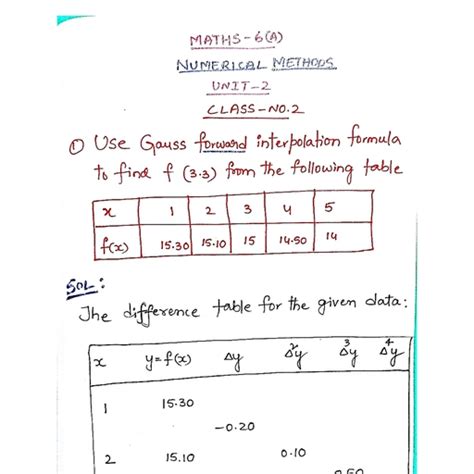 MATHS-6(A)
NUMERICAL METHODS
UNIT-2
CLASS-NO.2
① Use Gauss forward interpolation formula
to find f (3.3) from the following table
x 1 2 3 4 5
f(x) 15.30 15.10 15 14.50 14
SOL:
The difference table for the given data:
x y=f(x) Δy Δ²y Δ³y Δ⁴y
1 15.30
-0.20
2 15.10 0.10
0.50